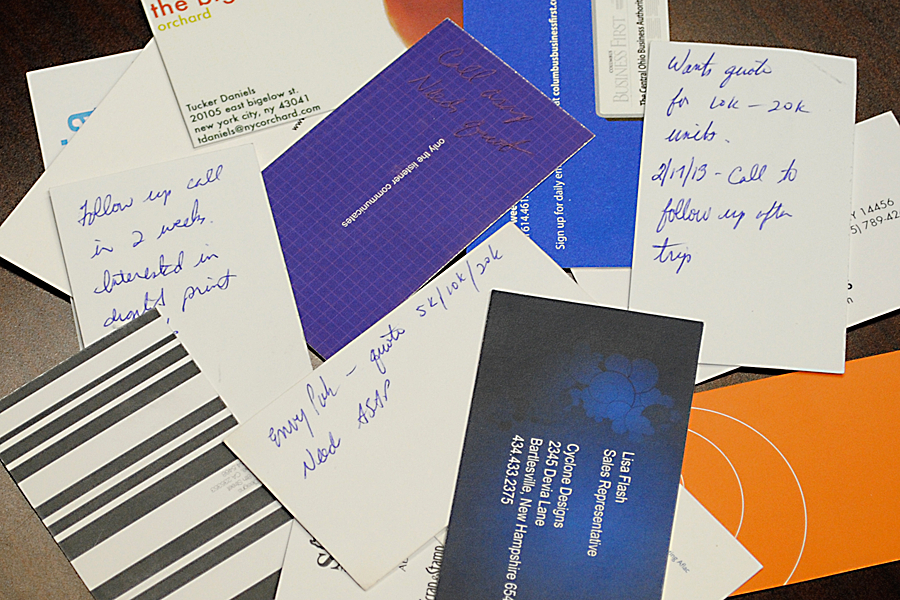 the big
orchard
Tucker Daniels
20105 east bigelow st.
new york city, ny 43041
tdaniels@nycorchard.com
Call
Need
only the listener communicates
columbusbusinessfirst.co
Sign up for daily em
614.461
COLUMBUS
BUSINESS FIRST
The Central Ohio Business Authority
Wants quote
for 10k - 20k
units.
2/17/13 - Call to
follow up after
trip
Y 14456
5) 789-42
Follow up call
in 2 weeks.
Interested in
digital print
quote 5k/10k/20k
Need ASAP
Lisa Flash
Sales Representative
Cyclone Designs
2345 Devia Lane
Bartlesville, New Hampshire 654
434.433.2375